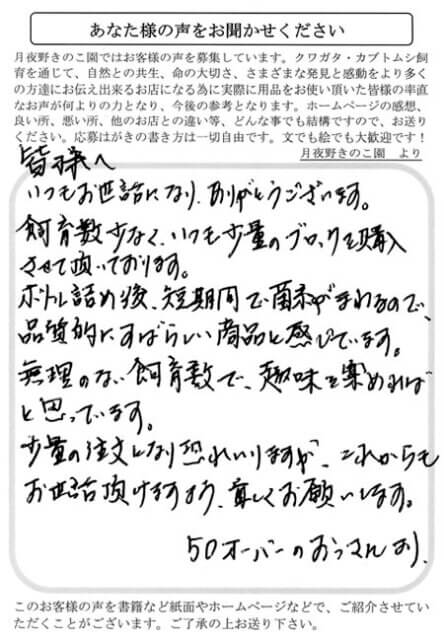 あなた様の声をお聞かせください
月夜野きのこ園ではお客様の声を募集しています。クワガタ・カブトムシ飼
育を通じて、自然との共生、命の大切さ、さまざまな発見と感動をより多く
の方達にお伝え出来るお店になる為に実際に用品をお使い頂いた皆様の率直
なお声が何よりの力となり、今後の参考となります。ホームページの感想、
良い所、悪い所、他のお店との違い等、どんな事でも結構ですので、お送り
ください。応募はがきの書き方は一切自由です。文でも絵でも大歓迎です！
月夜野きのこ園　より
皆様へ
いつもお世話になり、ありがとうございます。
飼育数少なく、いつも少量のブロックを購入
させて頂いております。
ボトル詰め後、短期間で菌糸がまわるので、
品質的にすばらしい商品と感じています。
無理のない飼育数で、趣味を楽めれば
と思っています。
少量の注文になり恐れいりますが、これからも
お世話頂けますよう、宜しくお願いします。
50オーバーのおっさんより、
このお客様の声を書籍など紙面やホームページなどで、ご紹介させてい
ただくことがございます。ご了承の上お送り下さい。